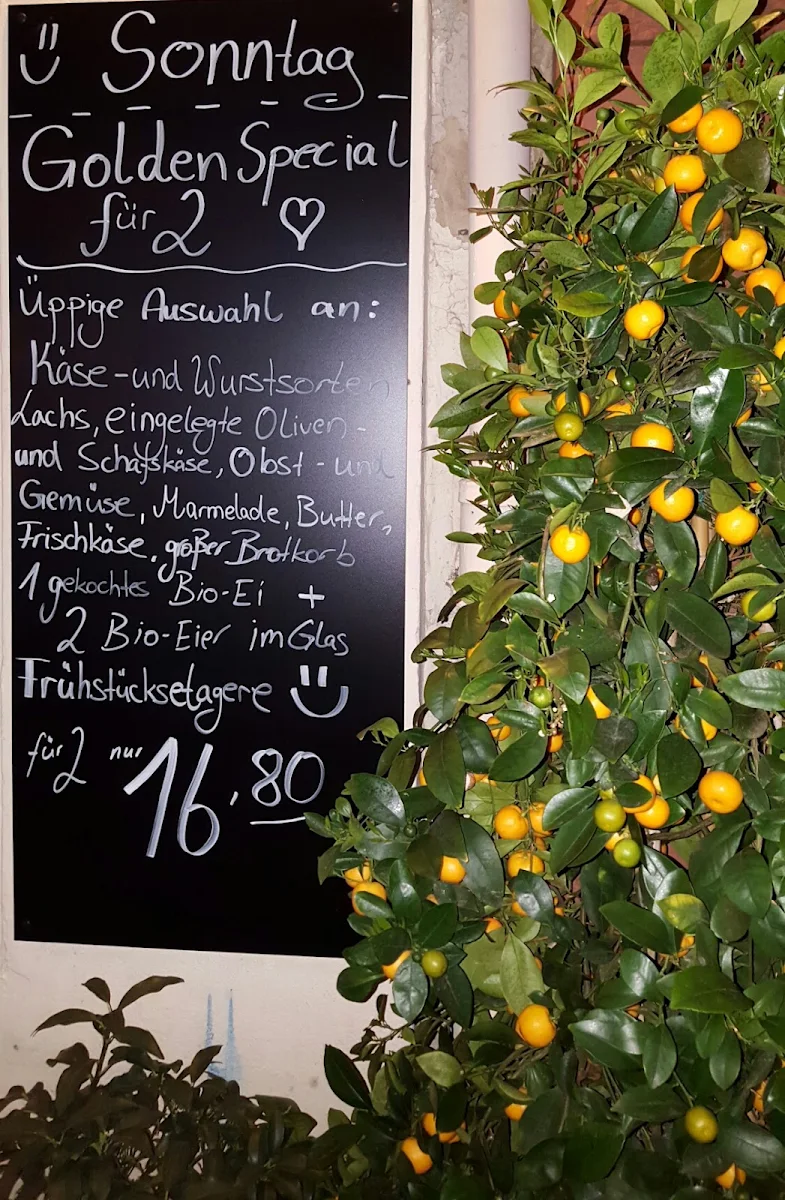 Sonntag
Golden Special
für 2
Üppige Auswahl an:
Käse-und Wurstsorten
Lachs, eingelegte Oliven-
und Schafskäse, Obst- und
Gemüse, Marmelade, Butter,
Frischkäse, großer Brotkorb
1 gekochtes Bio-Ei +
2 Bio-Eier im Glas
Frühstücksetagere
für 2 nur 16,80